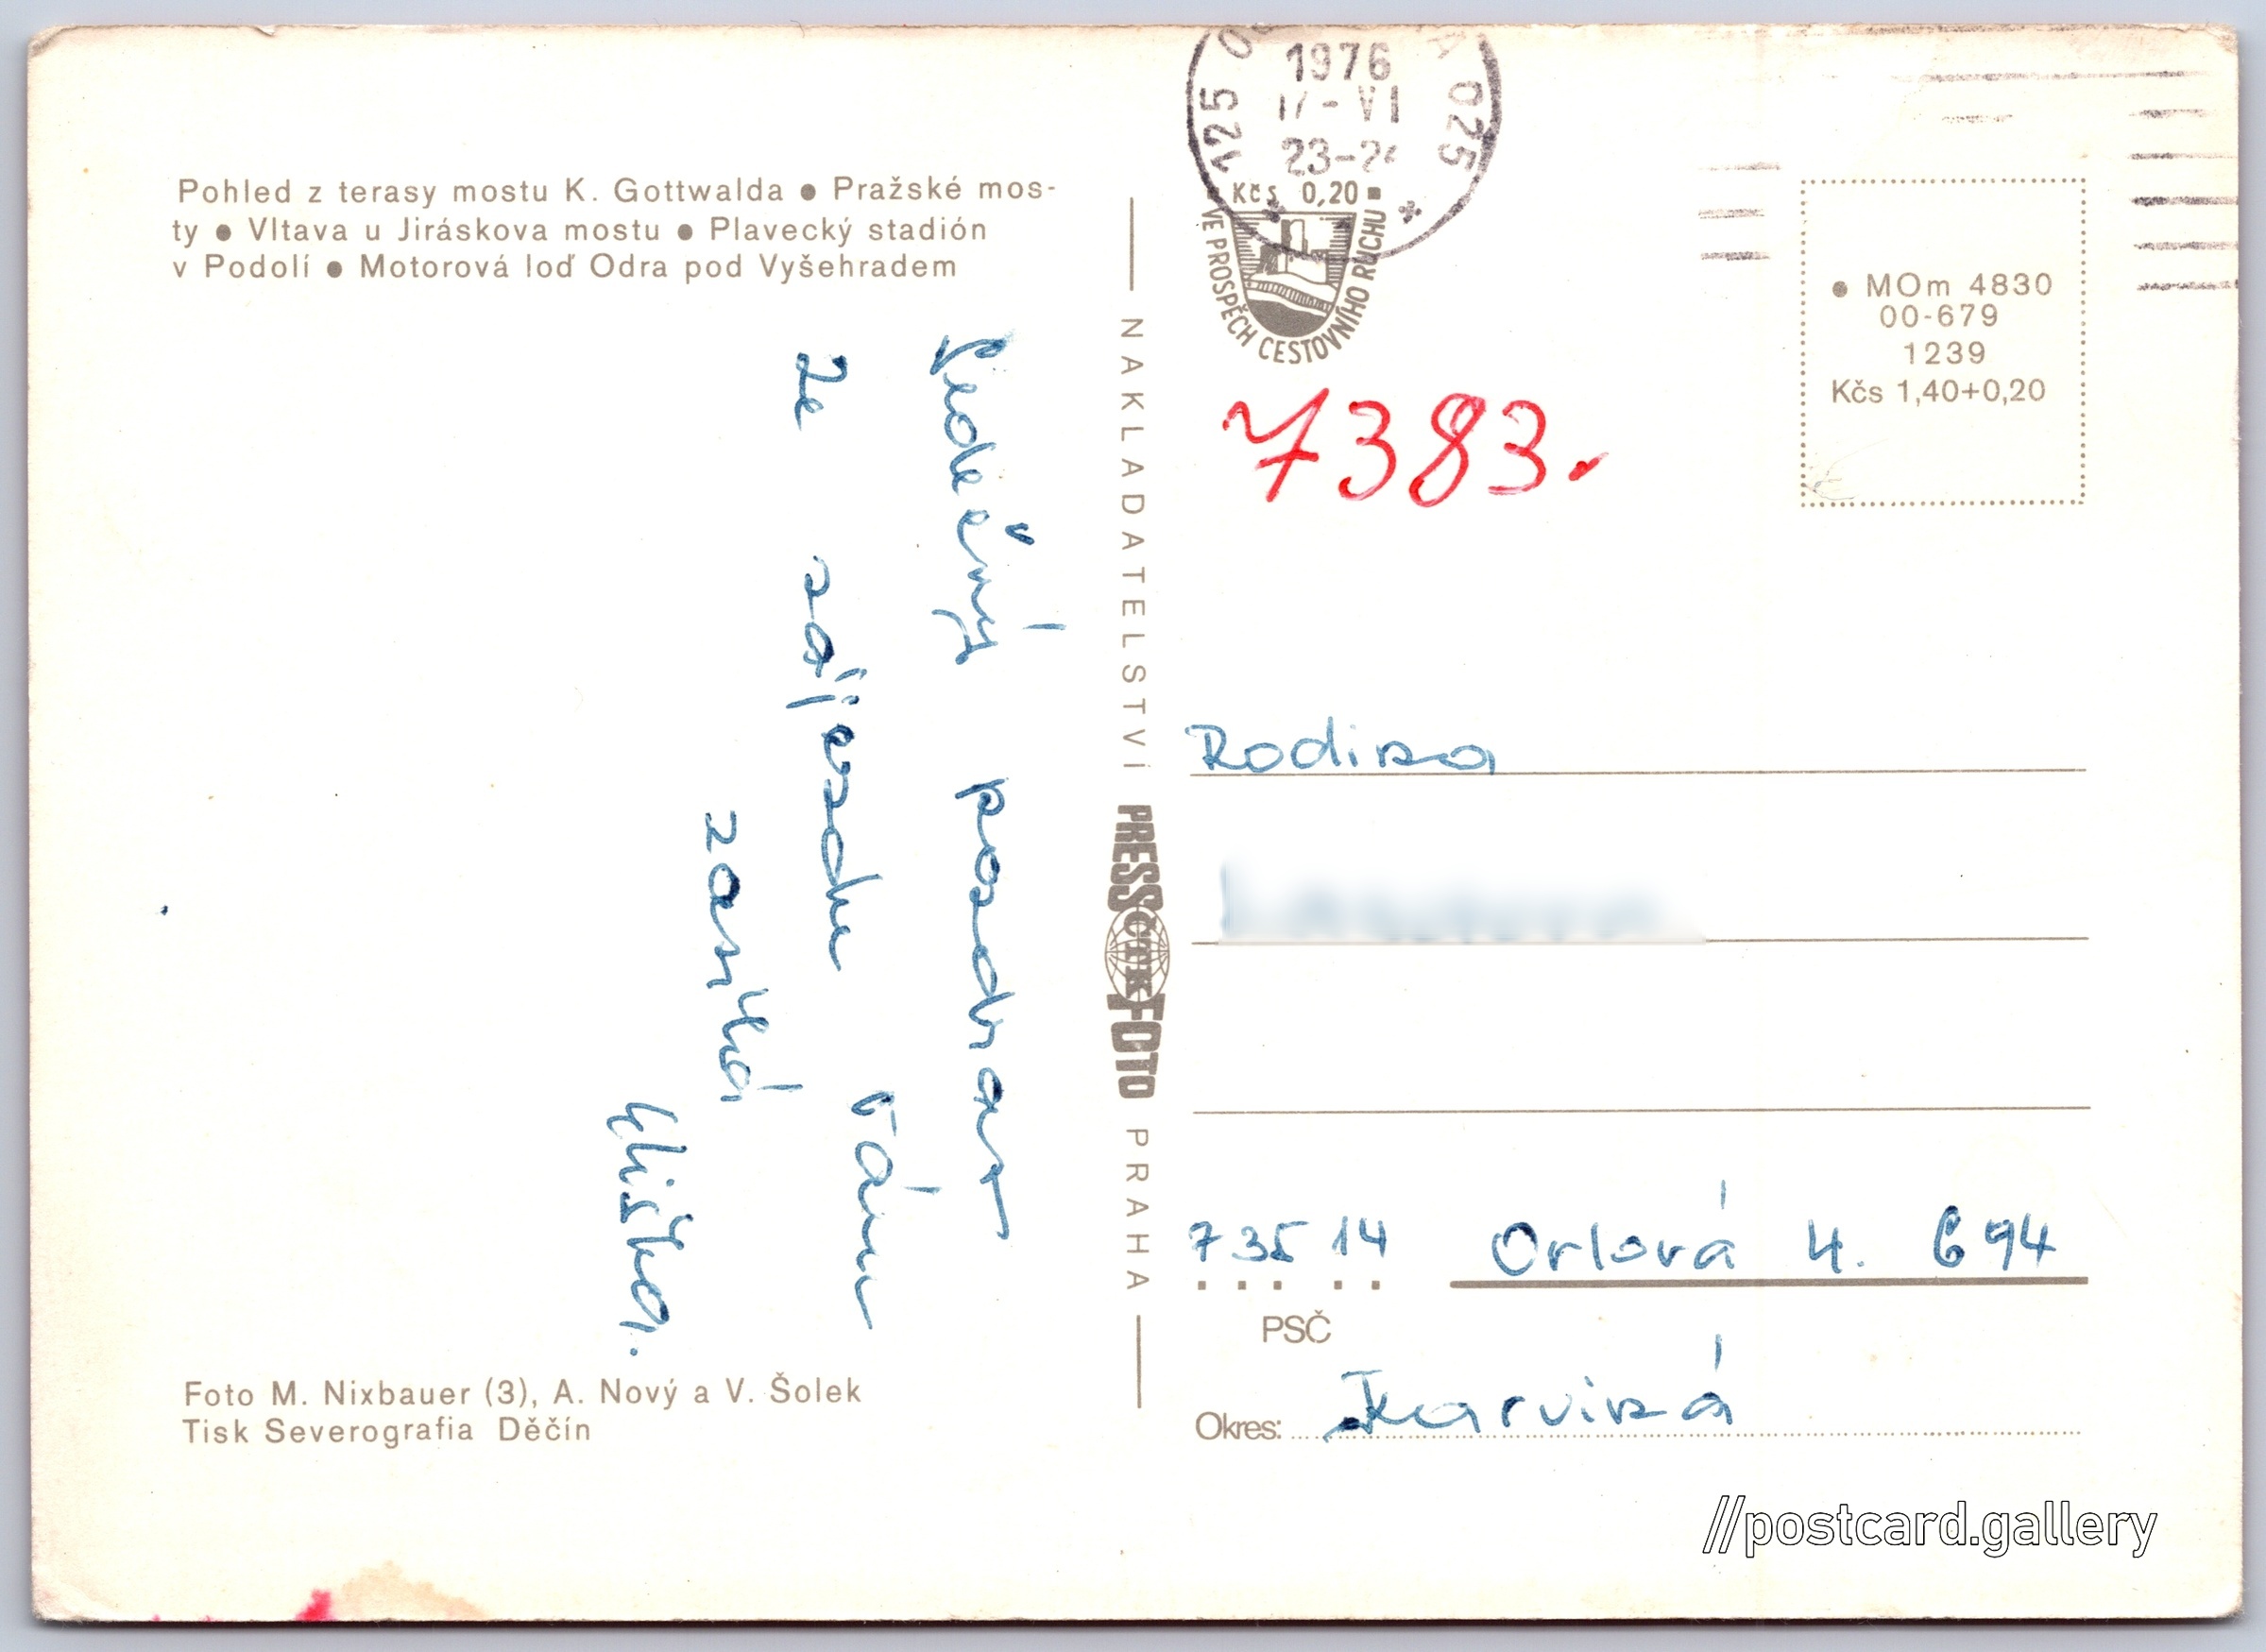 Pohled z terasy mostu K. Gottwalda ● Pražské mos-
ty ● Vltava u Jiráskova mostu ● Plavecký stadión
v Podolí ● Motorová loď Odra pod Vyšehradem
Srdečný pozdrav
ze zájezdu Vám
zasílá
Eliška.
Foto M. Nixbauer (3), A. Nový a V. Šolek
Tisk Severografia Děčín
NAKLADATELSTVÍ PRESSFOTO ČTK PRAHA
125 025
1976
17-VI
23-24
Kčs 0,20
VE PROSPĚCH CESTOVNÍHO RUCHU
7383.
● MOm 4830
00-679
1239
Kčs 1,40+0,20
Rodina
735 14 Orlová 4. 694
PSČ
Okres: Karviná
//postcard.gallery